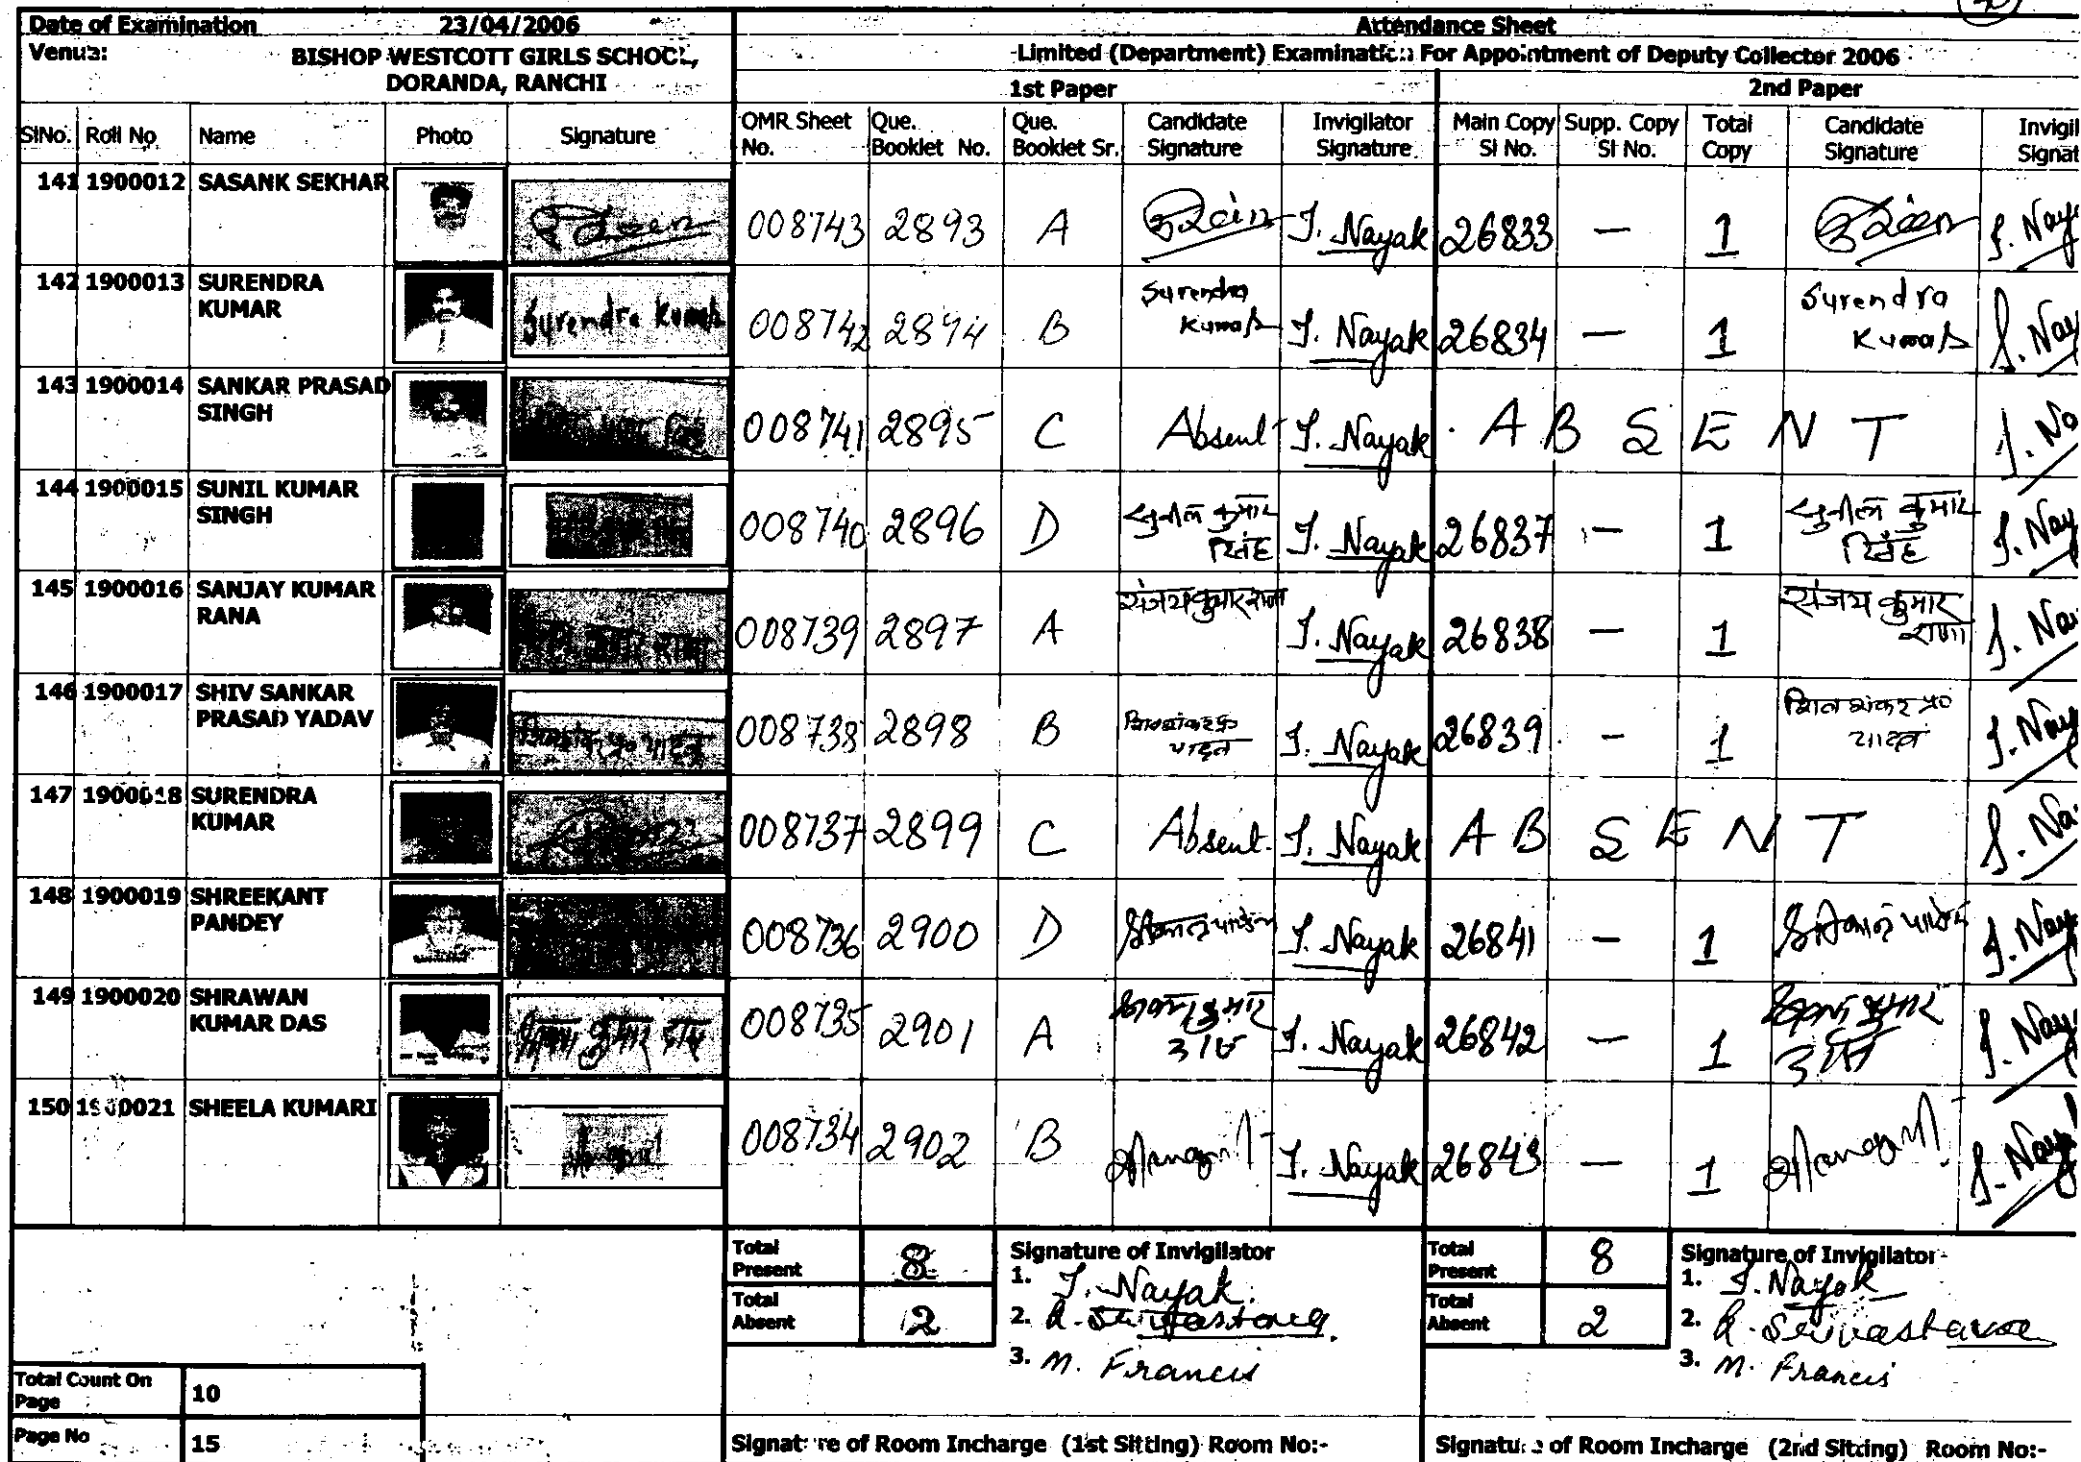 Date of Examination 23/04/2006 Attendance Sheet
Venue: BISHOP WESTCOTT GIRLS SCHOOL, Limited (Department) Examination For Appointment of Deputy Collector 2006
DORANDA, RANCHI 1st Paper 2nd Paper
SlNo. Roll No Name Photo Signature OMR Sheet No. Que. Booklet No. Que. Booklet Sr. Candidate Signature Invigilator Signature Main Copy Sl No. Supp. Copy Sl No. Total Copy Candidate Signature Invigil Signat
141 1900012 SASANK SEKHAR 008743 2893 A J. Nayak 26833 — 1 J. Nay
142 1900013 SURENDRA KUMAR Surendra Kumar 008742 2894 B Surendra Kumar J. Nayak 26834 — 1 Surendra Kumar J. Nay
143 1900014 SANKAR PRASAD SINGH 008741 2895 C Absent J. Nayak A B S E N T J. Na
144 1900015 SUNIL KUMAR SINGH 008740 2896 D सुनील कुमार सिंह J. Nayak 26837 — 1 सुनील कुमार सिंह J. Nay
145 1900016 SANJAY KUMAR RANA 008739 2897 A संजय कुमार राणा J. Nayak 26838 — 1 संजय कुमार राणा J. Na
146 1900017 SHIV SANKAR PRASAD YADAV 008738 2898 B शिवशंकर प्र यादव J. Nayak 26839 — 1 शिव शंकर प्र० यादव J. Nay
147 1900018 SURENDRA KUMAR 008737 2899 C Absent J. Nayak A B S E N T J. Na
148 1900019 SHREEKANT PANDEY 008736 2900 D श्रीकान्त पाण्डेय J. Nayak 26841 — 1 श्रीकान्त पाण्डेय J. Nay
149 1900020 SHRAWAN KUMAR DAS श्रवण कुमार दास 008735 2901 A श्रवण कुमार दास J. Nayak 26842 — 1 श्रवण कुमार दास J. Nay
150 1900021 SHEELA KUMARI 008734 2902 B J. Nayak 26843 — 1 J. Nay
Total Present 8 Signature of Invigilator Total Present 8 Signature of Invigilator
1. J. Nayak 1. J. Nayak
Total Absent 2 2. R. Srivastava Total Absent 2 2. R. Srivastava
3. M. Francis 3. M. Francis
Total Count On Page 10
Page No 15 Signature of Room Incharge (1st Sitting) Room No:- Signature of Room Incharge (2nd Sitting) Room No:-